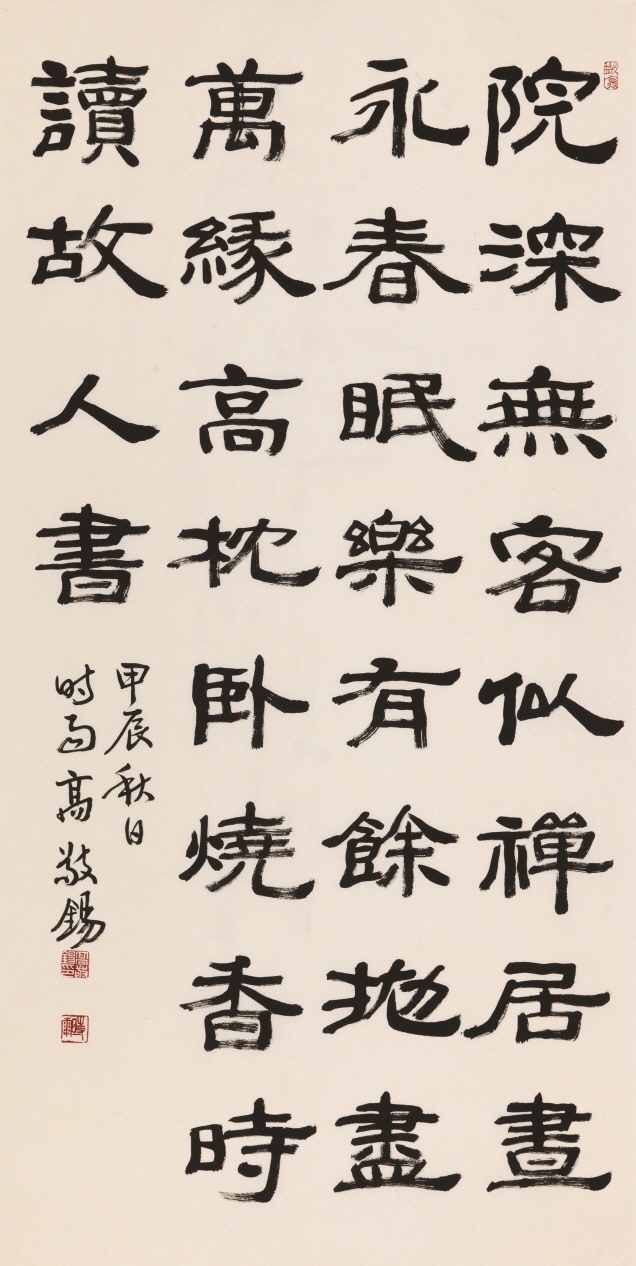 院深無客似禪居晝
永春眠樂有餘拋盡
萬緣高枕臥燒香時
讀故人書
甲辰秋日
时雨高敬錫